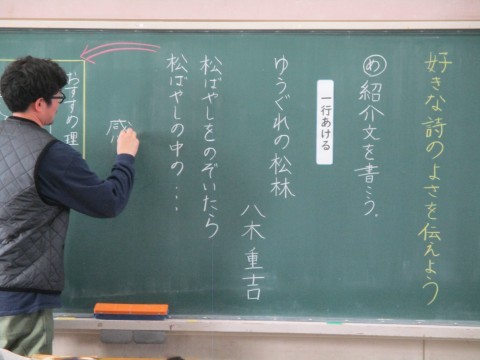 好きな詩のよさを伝えよう
め 紹介文を書こう.
一行あける
ゆうぐれの松林
八木重吉
松ばやしをのぞいたら
松ばやしの中の...
感
おすすめ 理